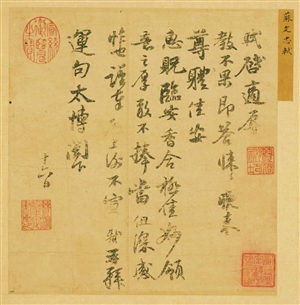 蘇文忠軾
軾啓適辱
教不果即答悚悚晚來
尊體佳安
惠貺臨安香合極佳妙顧
意之厚敢不捧當但深感
愧也謹奉啓上謝不宣軾再拜
運句太博閣下
十六日